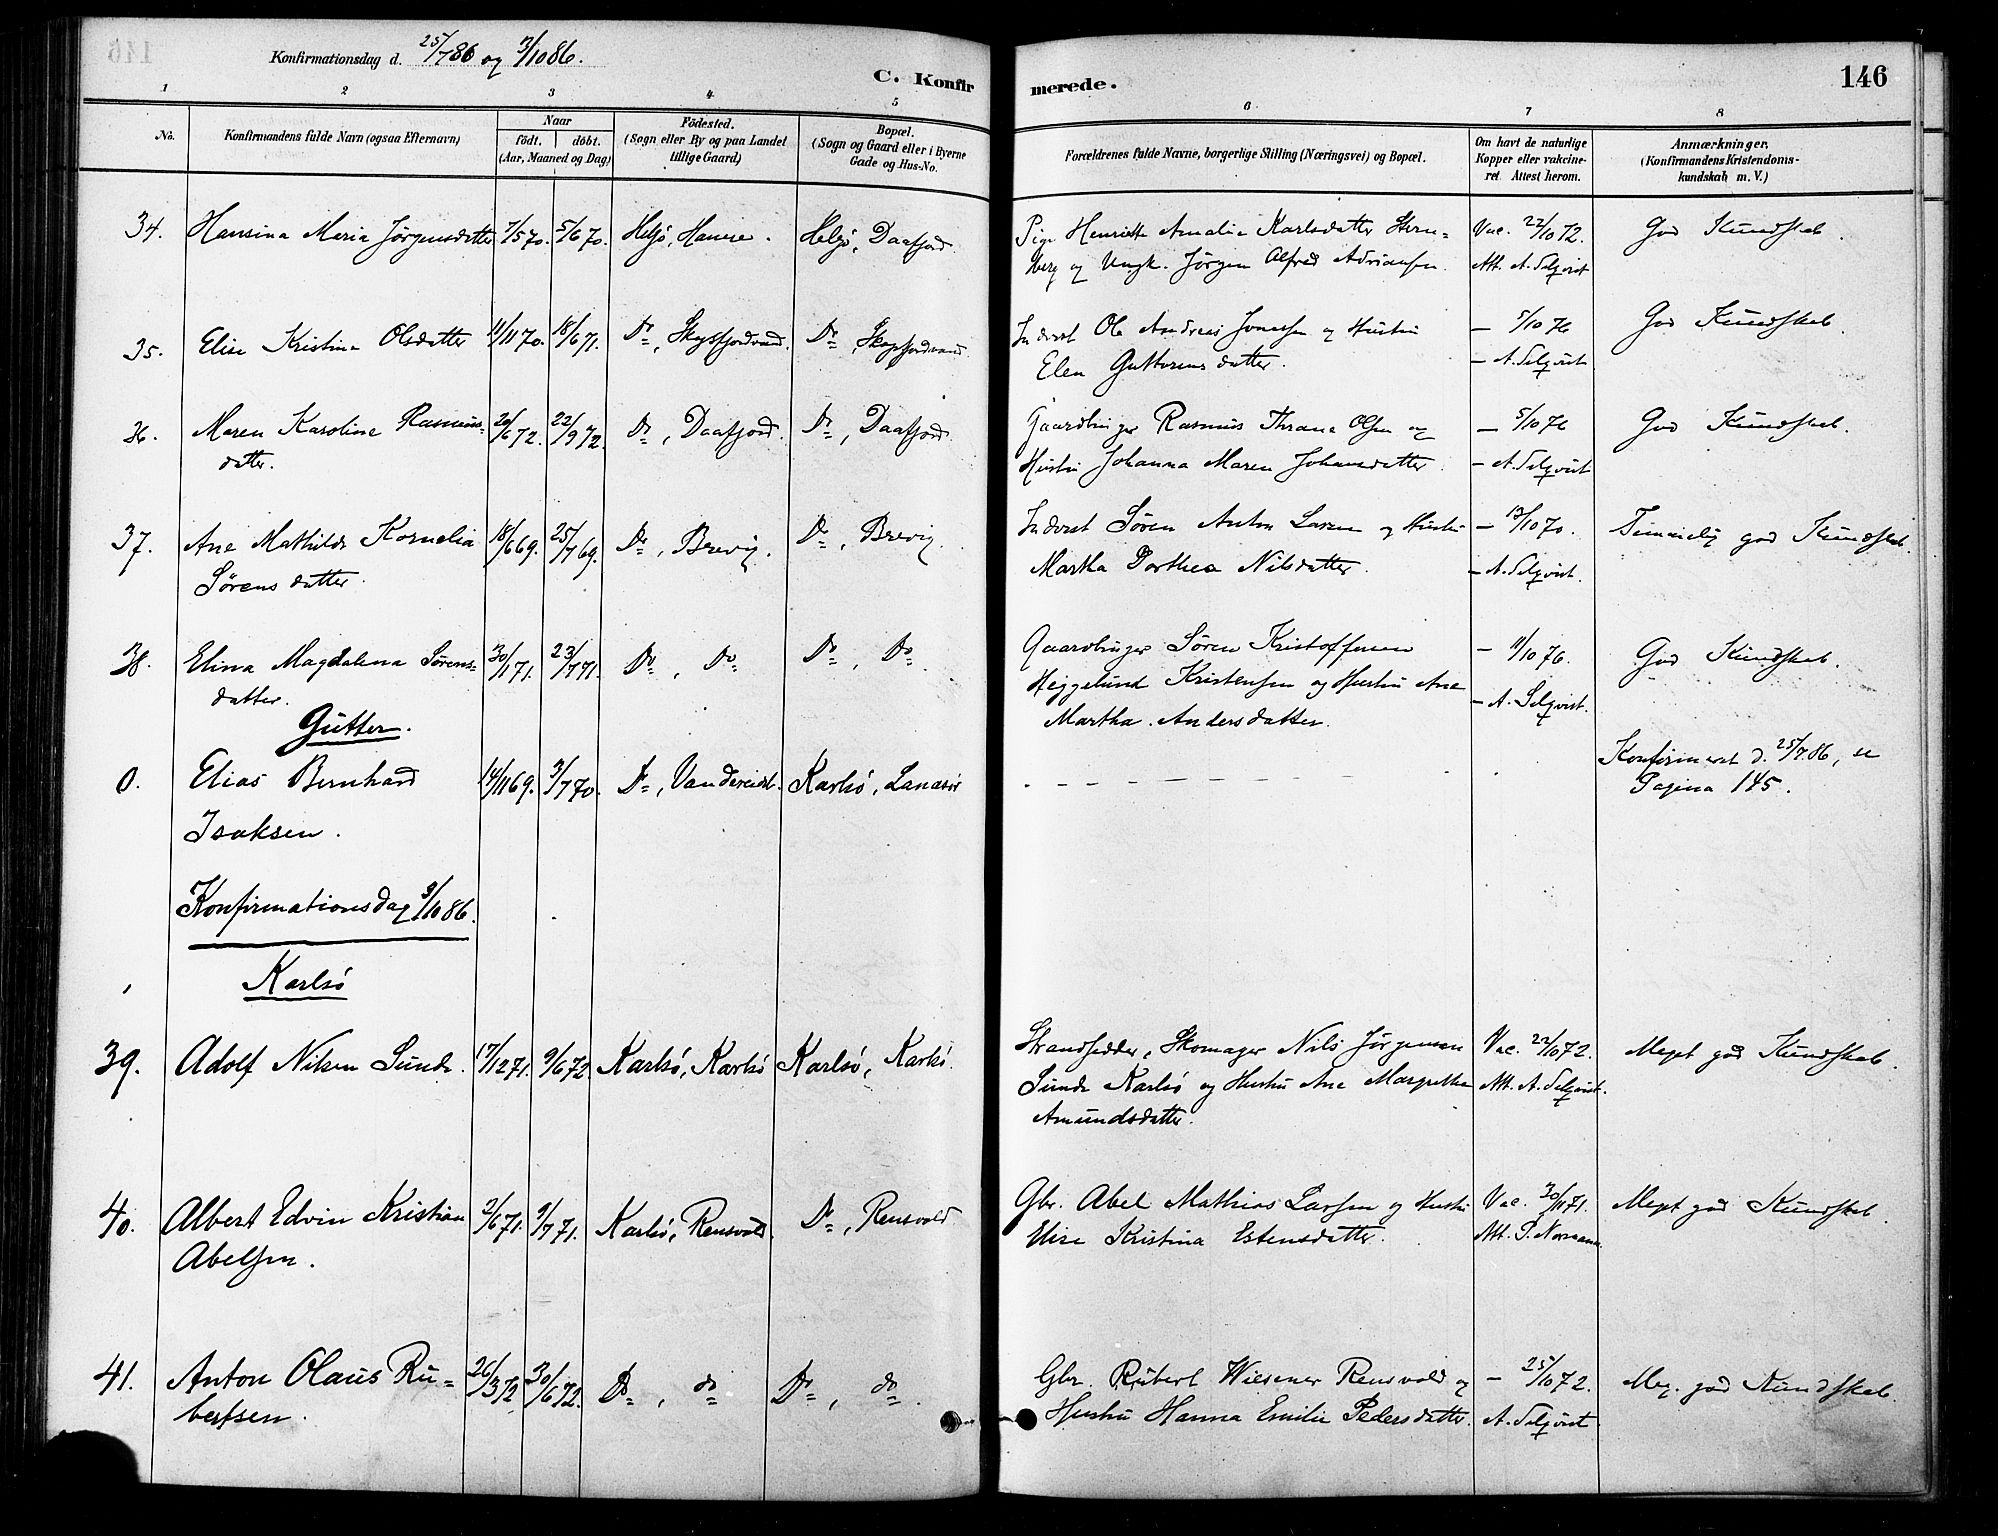 Konfirmationsdag d. 25/7 86 og 3/10 86.
C. Konfir
merede.
146
1 2 3 4 5 6 7 8
No.
Konfirmandens fulde Navn (ogsaa Efternavn)
Naar
født. døbt.
(Aar, Maaned og Dag)
Födested.
(Sogn eller By og paa Landet
tillige Gaard)
Bopæl.
(Sogn og Gaard eller i Byerne
Gade og Hus-No.
Forældrenes fulde Navne, borgerlige Stilling (Næringsvei) og Bopæl.
Om havt de naturlige
Kopper eller vakcine-
ret Attest herom.
Anmærkninger.
(Konfirmandens Kristendoms-
kundskab m. V.)
34. Hansina Maria Jørgensdatter 7/5 70. 5/6 70. Helgö, Hamre. Helgö, Daafjord
Pige Henriette Amalie Karlsdatter Stern= Vac. 22/10 72. God Kundskab.
berg og Ungk. Jörgen Alfred Adriansen. Att. A. Selqvist
35. Elise Kristina Olsdatter 11/11 70. 18/6 71. Do, Skogsfjordvand. Do, Skogsfjordvand
Inderst Ole Andreas Jonassen og Hustru — 5/10 76 God Kundskab.
Elen Guttorms datter. — A. Selqvist
36. Maren Karoline Rasmus- 20/6 72. 22/9 72. Do, Daafjord. Do, Daafjord.
datter.
Gaardbruger Rasmus Thrane Olsen og — 5/10 76 God Kundskab.
Hustru Johanna Maren Johansdatter. — A. Selqvist
37. Ane Mathilde Kornelia 18/6 69. 25/7 69. Do, Brevig. Do, Brevig.
Sørens datter.
Inderst Sören Anton Larsen og Hustru — 13/10 70. Temmelig god Kundskab.
Martha Dorthea Nilsdatter. — A. Selqvist.
38. Elina Magdalena Sörens- 30/1 71. 23/7 71. Do, Do Do, Do
datter.
Gaardbruger Sören Kristoffersen — 11/10 76. God Kundskab.
Heggelund Kristensen og Hustru Ane — A. Selqvist.
Martha Andersdatter.
Gutter.
0. Elias Bernhard 14/11 69. 3/7 70. Do, Vandereidet. Karlsö, Lanesör
Isaksen.
Konfirmeret d. 25/7 86, se
Pagina 145.
Konfirmationsdag 3/10 86.
Karlsö
39. Adolf Nilsen Sunde. 17/12 71. 9/6 72. Karlsö, Karlsö Karlsö, Karlsö.
Strandsidder, Skomager Nils Jörgensen Vac. 22/10 72. Meget god Kundskab.
Sunde Karlsö og Hustru Ane Margrethe Att. A. Selqvist.
Amundsdatter.
40. Albert Edvin Kristian 2/6 71. 9/7 71. Karlsö, Rensvold. Do, Rensvold
Abelsen.
Gbr. Abel Mathias Larsen og Hustru Vac. 30/11 71. Meget god Kundskab.
Elise Kristina Estensdatter. Att. P. Normann.
41. Anton Olaus Ru= 26/3 72 30/6 72. Do, do Do, do.
bertsen.
Gbr. Rubert Wiesener Rensvold og — 25/10 72. Meg. god Kundskab
Hustru Hanna Emilie Pedersdatter. A. Selqvist